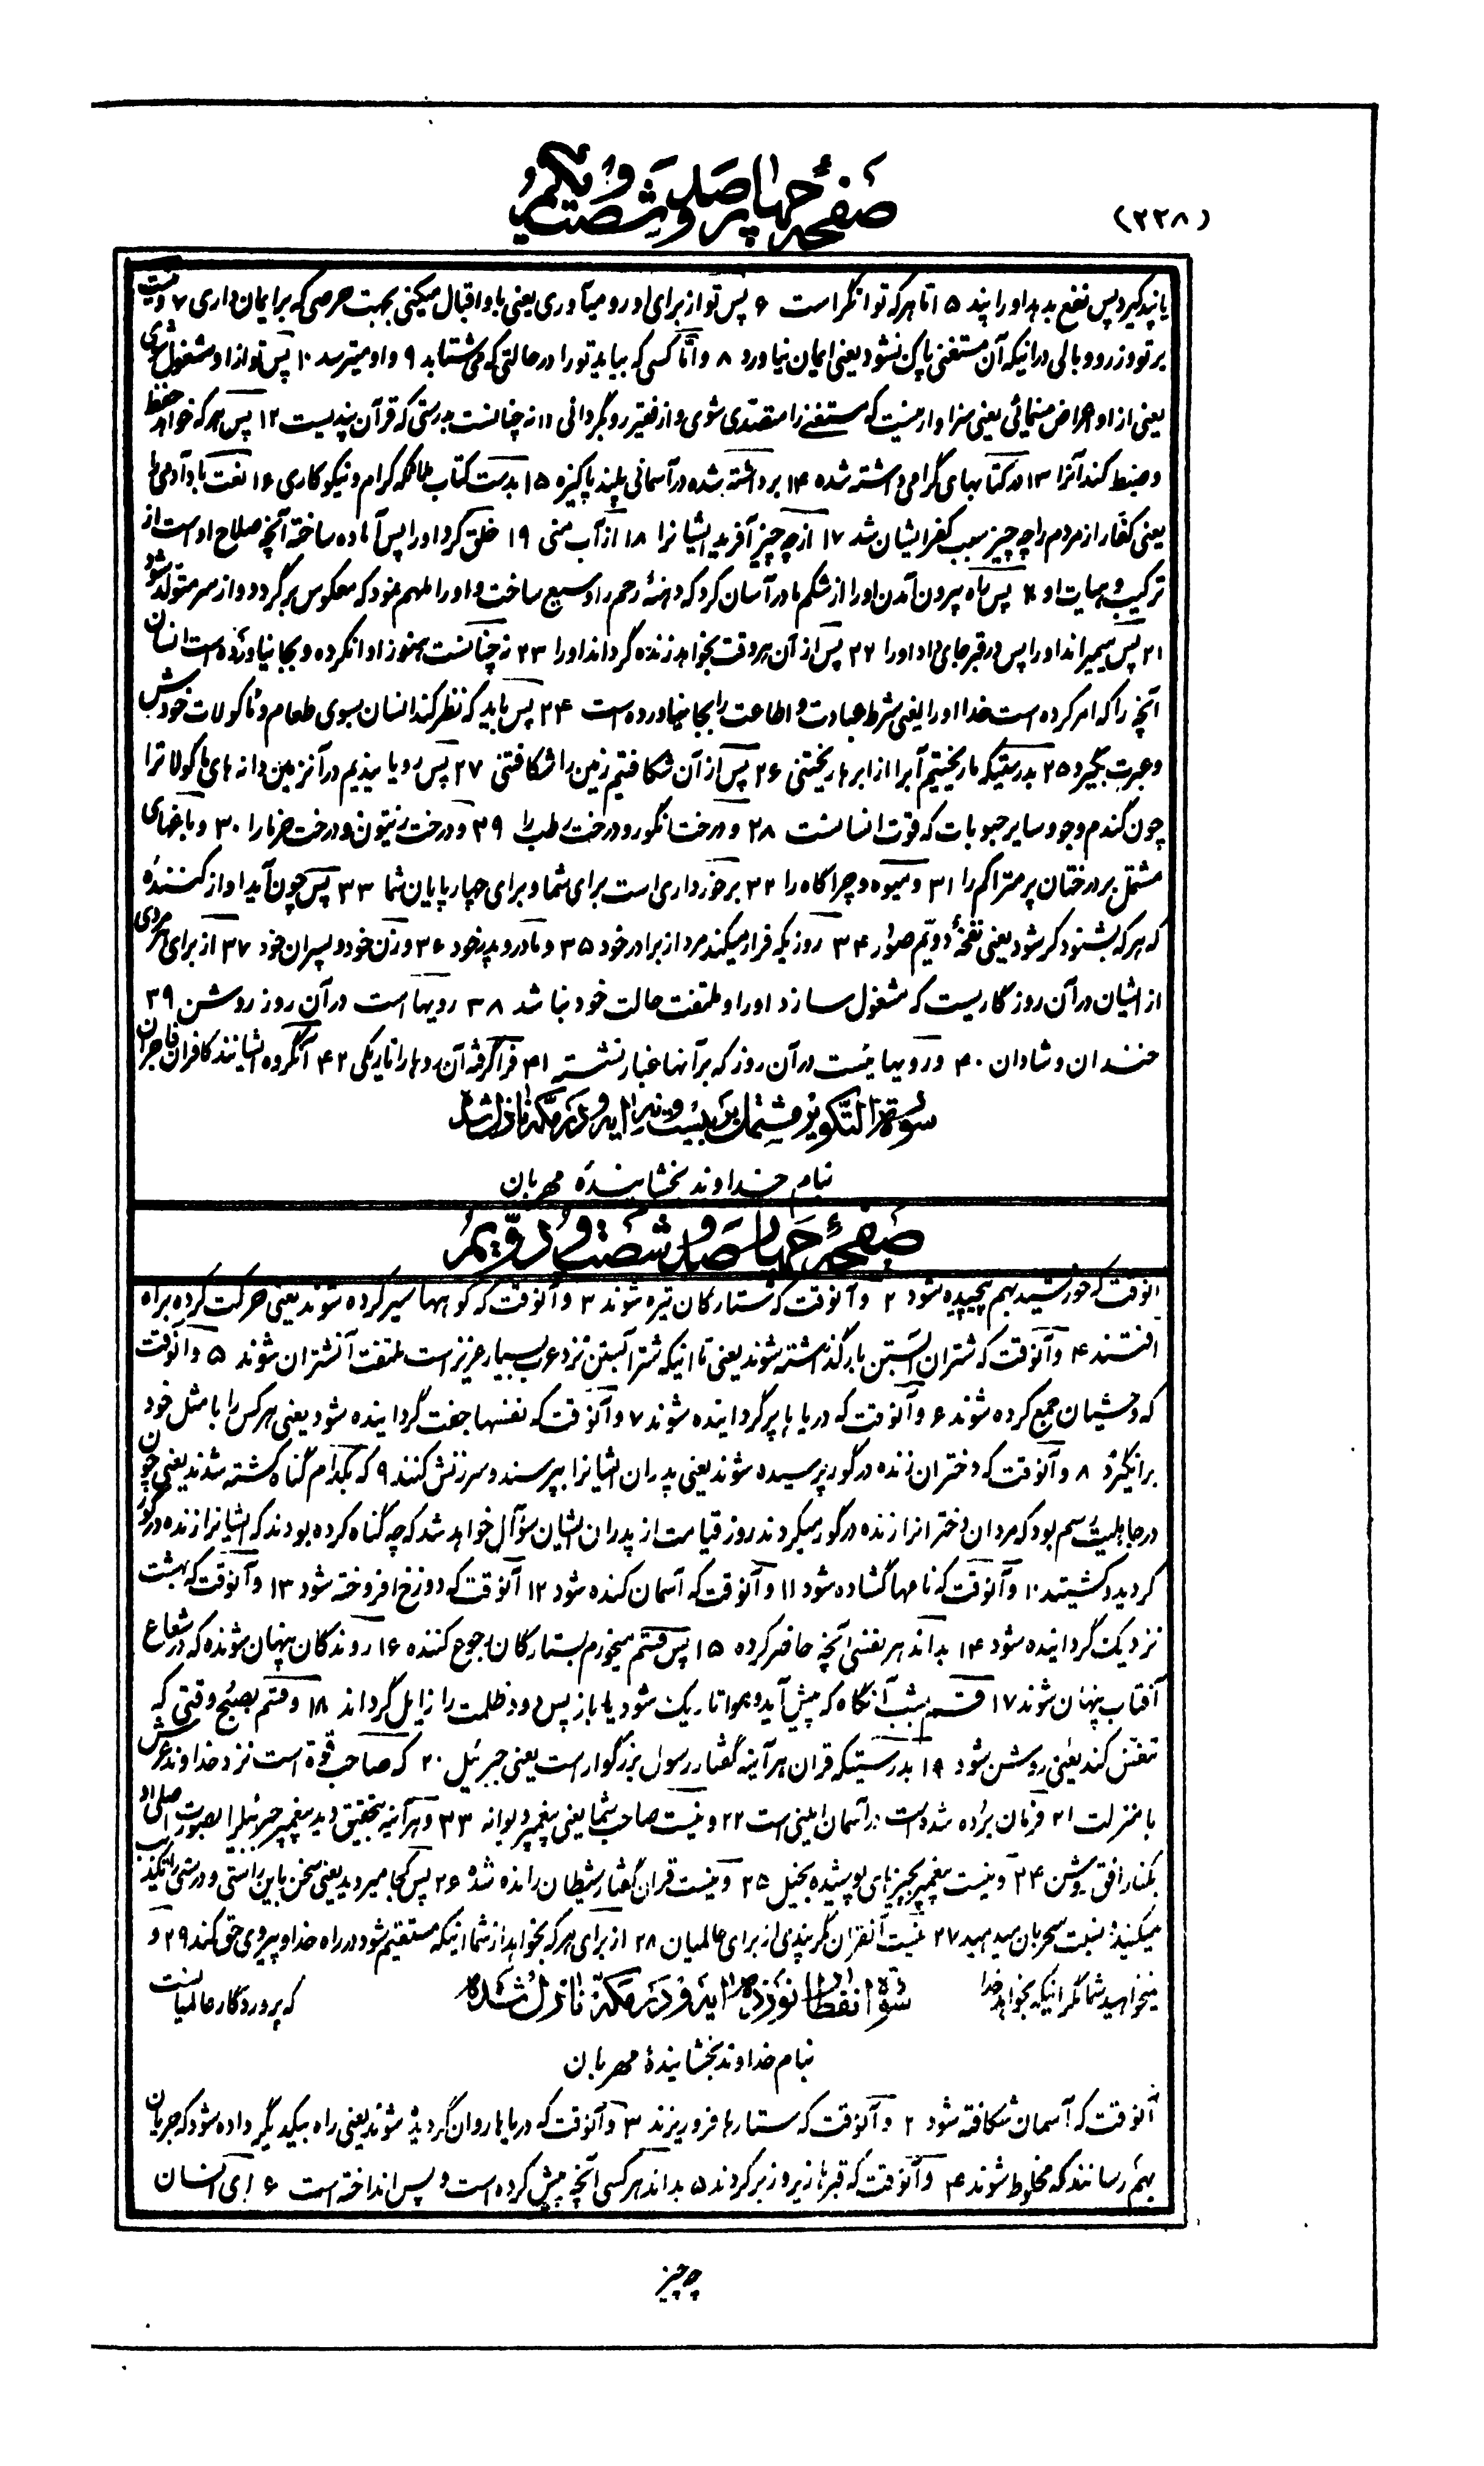 (۲۲۸)
صفحهٔ چهار صد و شصت و یکم
یا پند گیرد پس نفع بدهد او را پند ۵ اما هر که توانگر است ۶ پس تو از برای او رو میآوری یعنی باو اقبال میکنی بجهت حرصی که بر ایمان داری ۷ و نیست
بر تو وزر و وبالی در اینکه آن مستغنی پاک نشود یعنی ایمان نیاورد ۸ و امّا کسی که بیاید تو را در حالتی که می شتابد ۹ و او میترسد ۱۰ پس تو از او مشغول شوی
یعنی از او اعراض مینمائی یعنی سزاوار نیست که مستغنی را متصدی شوی و از فقیر رو بگردانی ۱۱ نه چنانست بدرستی که قرآن پندیست ۱۲ پس هر که خواهد حفظ
و ضبط کند آنرا ۱۳ در کتابهای گرامی داشته شده ۱۴ برداشته شده در آسمانی بلند پاکیزه ۱۵ بدست کتاب ملائکه کرام و نیکوکاری ۱۶ لعنت باد آدمی را
یعنی کفّار از مردم را چه چیز سبب کفر ایشان شد ۱۷ از چه چیز آفرید ایشانرا ۱۸ از آب منی ۱۹ خلق کرد او را پس آماده ساخته آنچه صلاح اوست از
ترکیب و هیات او ۲۰ پس راه بیرون آمدن او را از شکم مادر آسان کرد که دهنهٔ رحم را وسیع ساخت و او را ملهم نمود که معکوس برگردد و از سر متولّد شود
۲۱ پس بمیراند او را پس در قبر جای داد او را ۲۲ پس از آن هر وقت بخواهد زنده گرداند او را ۲۳ نه چنانست هنوز ادا نکرده و بجا نیاورده است انسان
آنچه را که امر کرده است خدا او را یعنی شرط عبادت و اطاعت را بجا نیاورده است ۲۴ پس باید که نظر کند انسان بسوی طعام و ماکولات خودش
و عبرت بگیرد ۲۵ بدرستیکه ما ریختیم آبرا از ابر ریختنی ۲۶ پس از آن شکافتیم زمین را شکافتنی ۲۷ پس رویانیدیم در آنزمین دانه های ماکولاترا
چون گندم و جو و سایر حبوبات که قوت انسانست ۲۸ و درخت انگور و درخت رطب را ۲۹ و درخت زیتون و درخت خرما را ۳۰ و باغهای
مشتمل بر درختان پر متراکم را ۳۱ و میوه و چراگاه را ۳۲ برخورداری است برای شما و برای چهارپایان شما ۳۳ پس چون آید آواز کننده
که هر که بشنود کر شود یعنی نفخهٔ دویّم صور ۳۴ روزیکه فرار میکند مرد از برادر خود ۳۵ و مادر و پدر خود ۳۶ و زن خود و پسران خود ۳۷ از برای هر مردی
از ایشان در آن روز کاریست که مشغول سازد او را و ملتفت حالت خود نباشد ۳۸ رویها است در آن روز روشن ۳۹
خندان و شادان ۴۰ و رویهاییست در آن روز که بر آنها غبار نشسته ۴۱ فرا گرفته آن روها را تاریکی ۴۲ آنگروه ایشانند کافران فاجران
سورة التکویر مشتمل بر بیست و نه ایه و در مکّه نازل شد
بنام خداوند بخشایندهٔ مهربان
صفحهٔ چهار صد و شصت و دوّیم
آنوقت که خورشید بهم پیچیده شود ۲ و آنوقت که ستارگان تیره شوند ۳ و آنوقت که کوهها سیر کرده شوند یعنی حرکت کرده براه
افتند ۴ و آنوقت که شتران آبستن بار گذاشته شوند یعنی تا اینکه شتر آبستن نزد عرب بسیار عزیز است ملتفت آنشتران نشوند ۵ و آنوقت
که وحشیان جمع کرده شوند ۶ و آنوقت که دریاها پر گردانیده شوند ۷ و آنوقت که نفسها جفت گردانیده شود یعنی هر کس را با مثل خود
برانگیزد ۸ و آنوقت که دختران زنده در گور پرسیده شوند یعنی پدران ایشانرا بپرسند و سرزنش کنند ۹ که بکدام گناه کشته شدند یعنی چون
در جاهلیت رسم بود که مردان دخترانرا زنده در گور میکردند روز قیامت از پدران ایشان سؤآل خواهد شد که چه گناه کرده بودند که ایشانرا زنده در گور
کردید و کشتید ۱۰ و آنوقت که نامها گشاده شود ۱۱ و آنوقت که آسمان کنده شود ۱۲ آنوقت که دوزخ افروخته شود ۱۳ و آنوقت که بهشت
نزدیک گردانیده شود ۱۴ بداند هر نفسی آنچه حاضر کرده ۱۵ پس قسم میخورم بستارگان رجوع کننده ۱۶ روندگان پنهان شونده که در شعاع
آفتاب پنهان شوند ۱۷ قسم بشب آنگاه که پیش آید و هوا تاریک شود یا باز پس رود ظلمت را زایل گرداند ۱۸ و قسم بصبح وقتی که
تنفّس کند یعنی روشن شود ۱۹ بدرستیکه قران هر آینه گفتار رسول بزرگوار است یعنی جبرئیل ۲۰ که صاحب قوّة است نزد خداوند عرش
با منزلت ۲۱ فرمان برده شده است در آسمان امینی است ۲۲ و نیست صاحب شما یعنی پیغمبر دیوانه ۲۳ و هر آینه بتحقیق دید پیغمبر جبرئیلرا بصورت اصلی او
بکنار افق روشن ۲۴ و نیست پیغمبر بچیزهای پوشیده بخیل ۲۵ و نیست قران گفتار شیطان رانده شده ۲۶ پس کجا میروید یعنی سخن باین راستی و درستی را تکذیب
میکنید و نسبت سحر بان میدهید ۲۷ نیست آنقران مگر پندی از برای عالمیان ۲۸ از برای هر که بخواهد از شما اینکه مستقیم شود در راه خدا و پیروی حق کند ۲۹ و
نیخواهید شما مگر اینکه بخواهد خدا که پروردگار عالمیانست
سورة انفطار نوزده ایه و در مکّه نازل شده
بنام خداوند بخشایندهٔ مهربان
آنوقت که آسمان شکافته شود ۲ و آنوقت که ستارها فرو ریزند ۳ و آنوقت که دریاها روان گردیده شوند یعنی راه بیکدیگر داده شود که جریان
بهم رسانند که مخلوط شوند ۴ و آنوقت که قبرها زیر و زبر کردند ۵ بداند هر کسی آنچه پیش کرده است و پس انداخته است ۶ ای انسان
چه چیز